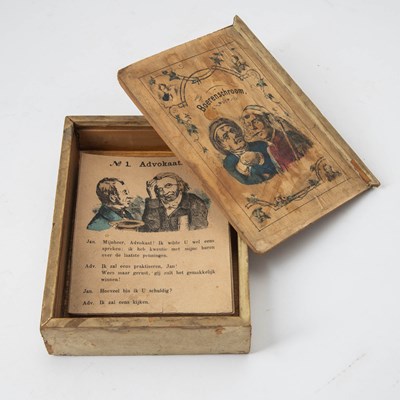 Boerenschroom
№ 1. Advokaat.
Jan. Mijnheer, Advokaat! ik wilde U wel eens
spreken; ik heb kwestie met mijne buren
over de laatste penningen.
Adv. Ik zal eens praktizeren, Jan!
Wees maar gerust, gij zult het gemakkelijk
winnen!
Jan. Hoeveel ben ik U schuldig?
Adv. Ik zal eens kijken.